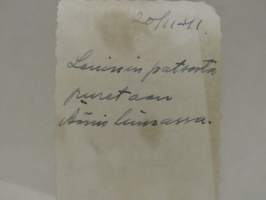 20/11-41.
Leninin patsasta
puretaan
Äänislinnassa.